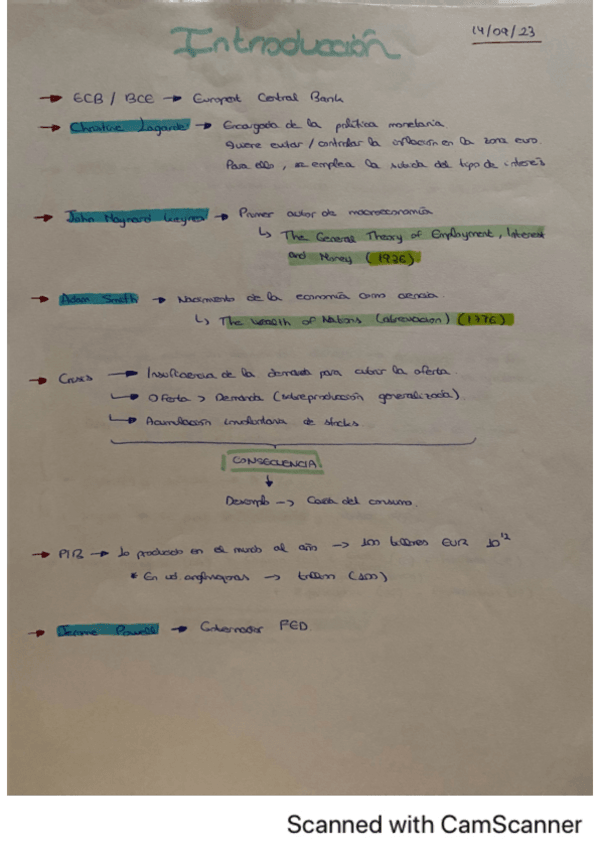 Introducción
14/09/23
→ ECB / BCE → European Central Bank
→ Christine Lagarde → Encargada de la política monetaria
Quiere evitar / controlar la inflación en la zona euro.
Para ello, se emplea la subida del tipo de interés
→ John Maynard Keynes → Primer autor de macroeconomía
↳ The General Theory of Employment, Interest
and Money (1936)
→ Adam Smith → Nacimiento de la economía como ciencia.
↳ The Wealth of Nations (abreviación) (1776)
→ Crisis → Insuficiencia de la demanda para cubrir la oferta.
↳ Oferta > Demanda (sobreproducción generalizada).
↳ Acumulación involuntaria de stocks.
CONSECUENCIA
↓
Desempleo → Caída del consumo.
→ PIB → lo producido en el mundo al año → 100 billones EUR 10¹²
* En → trillion (100)
→ Jerome Powell → Gobernador FED.
Scanned with CamScanner